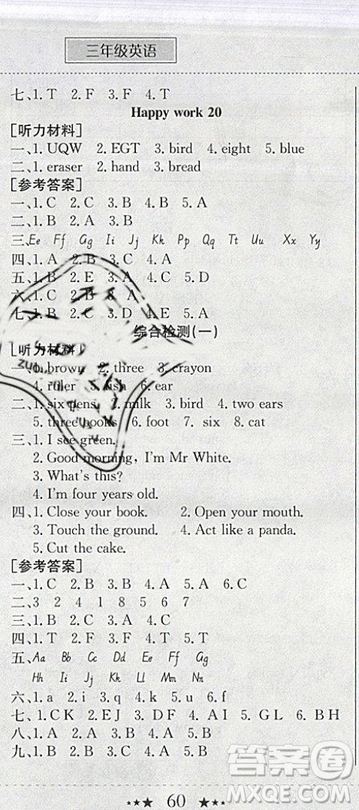 三年级英语
七、1. T 2. F 3. F 4. T
Happy work 20
[听力材料]
一、1. UQW 2. EGT 3. bird 4. eight 5. blue
二、1. eraser 2. hand 3. bread
[参考答案]
一、1. C 2. C 3. B 4. B 5. A
二、1. B 2. A 3. B
三、Ee Ff Gg Hh Ii Jj Kk Ll
四、1. A 2. B 3. C 4. A
五、1. B 2. E 3. A 4. C 5. D
六、1. C 2. B 3. C 4. A
综合检测(一)
[听力材料]
一、1. brown 2. three 3. crayon
4. ruler 5. fish 6. ear
二、1. six pens 2. milk 3. bird 4. two ears
5. three books 6. foot 7. six 8. cat
三、1. I see green.
2. Good morning, I'm Mr White.
3. What's this?
4. I'm four years old.
四、1. Close your book. 2. Open your mouth.
3. Touch the ground. 4. Act like a panda.
5. Cut the cake.
[参考答案]
一、1. C 2. B 3. B 4. A 5. A 6. C
二、3 2 4 1 8 5 6 7
三、1. B 2. A 3. B 4. A
四、1. T 2. F 3. F 4. F 5. T
五、Aa Bb Cc Dd Ee Ff Gg
Hh Ii Jj Kk Ll Mm Nn
六、1. a 2. i 3. q 4. k 5. u 6. f
七、1. C K 2. D F 3. J L 4. E G 5. B H
八、1. A 2. D 3. B 4. A 5. B
九、1. B 2. A 3. C 4. B 5. A
★★★ 60 ★★★